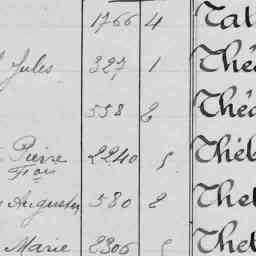 1766 4 Tat
Jules 327 1 Thé
558 2 Théo
Pierre 2240 5 Théb
Fois
Augustin 580 2 Thet
Marie 2306 5 Thet